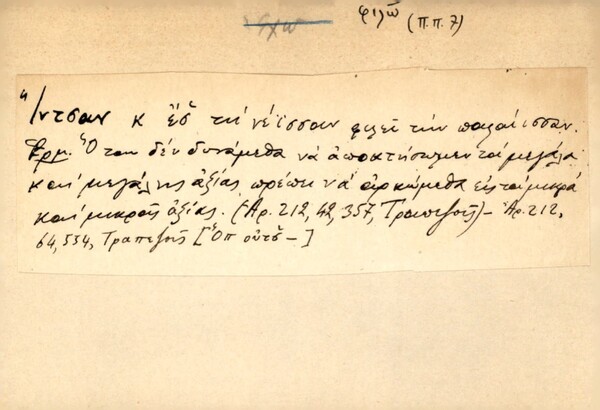 ἔχω
φιλῶ (π.π. 7)
"Ίντσαν κ̓ ἔ̓ς̌ τὴ νέϊσσαν φιλεῖ τὴν παλαίϊσσαν.
Ἑρμ. Ὅταν δὲν δυνάμεθα νὰ ἀποκτήσωμεν τὰ μεγάλα
καὶ μεγάλης ἀξίας πρέπει νὰ ἀρκώμεθα εἰς τὰ μικρὰ
καὶ μικρᾶς ἀξίας. (Ἀρ. 212, 42, 357, Τραπεζοῦς) - Ἀρ. 212,
64, 534, Τραπεζοῦς [Ὅπ οὐτš̌ —]